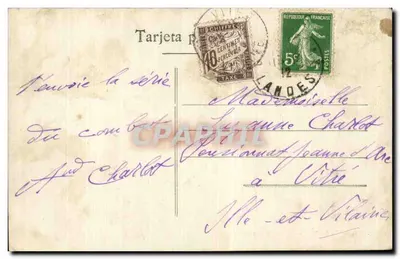 Tarjeta p
CHIFFRE
10
CENTIMES
À PERCEVOIR
TAXE
REPUBLIQUE FRANÇAISE
5c
POSTES
12
LANDES
J'envoie la série
du combat
Aud Charlot
CPARAMA
Mademoiselle
Suzanne Charlot
Pensionnat Jeanne d'Arc
à Vitré
Ille-et-Vilaine